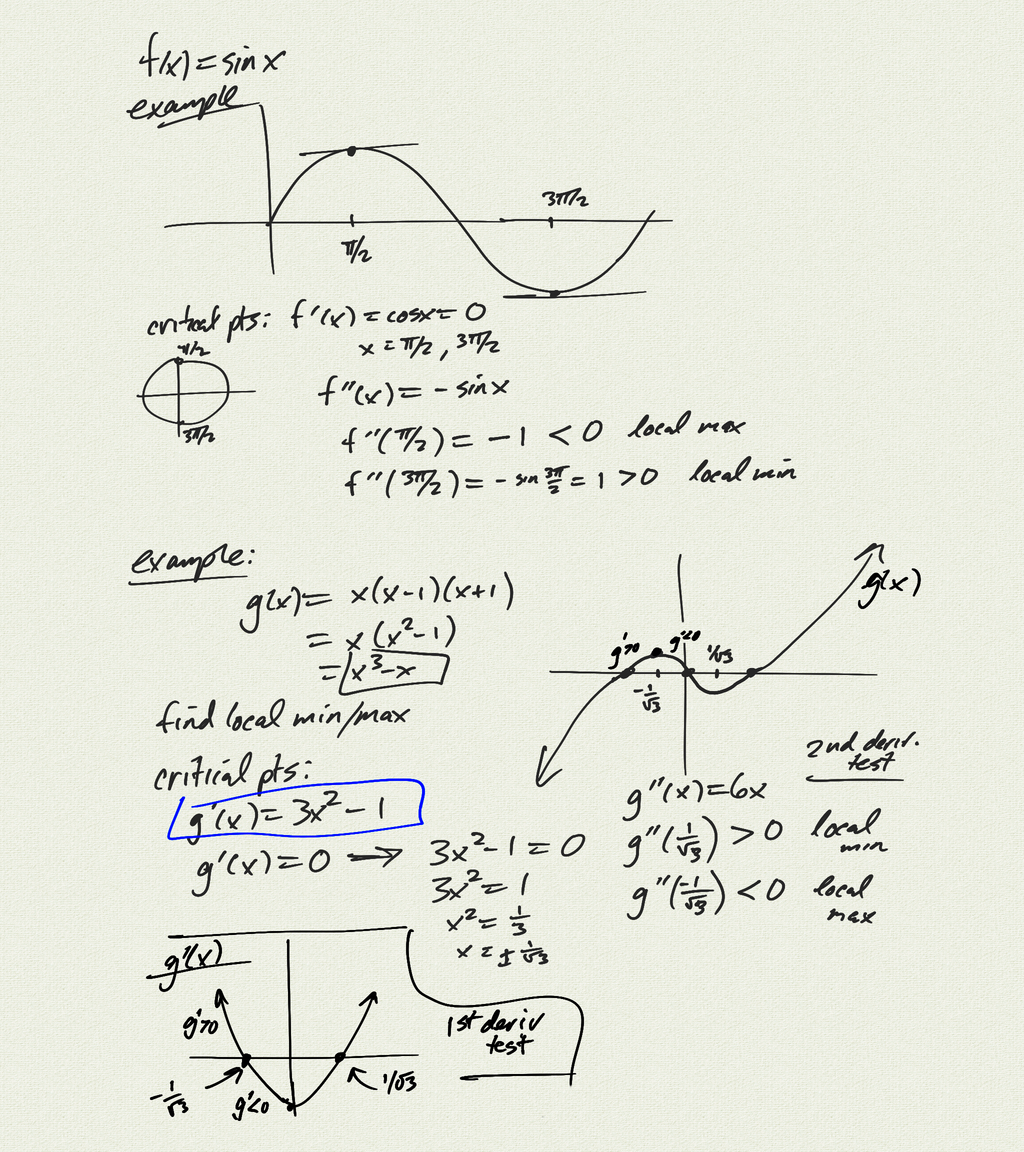 f(x) = sin x
example
3π/2
π/2
critical pts: f'(x) = cosx = 0
x = π/2, 3π/2
π/2
3π/2
f''(x) = - sin x
f''(π/2) = -1 < 0 local max
f''(3π/2) = - sin 3π/2 = 1 > 0 local min
example:
g(x) = x(x-1)(x+1)
= x(x²-1)
= x³-x
g(x)
g'>0
g'<0
1/√3
-1/√3
find local min/max
critical pts:
g'(x) = 3x² - 1
g'(x) = 0 → 3x² - 1 = 0
3x² = 1
x² = 1/3
x = ± 1/√3
2nd deriv.
test
g''(x) = 6x
g''(1/√3) > 0 local
min
g''(-1/√3) < 0 local
max
g'(x)
g'>0
-1/√3
g'<0
1/√3
1st deriv
test